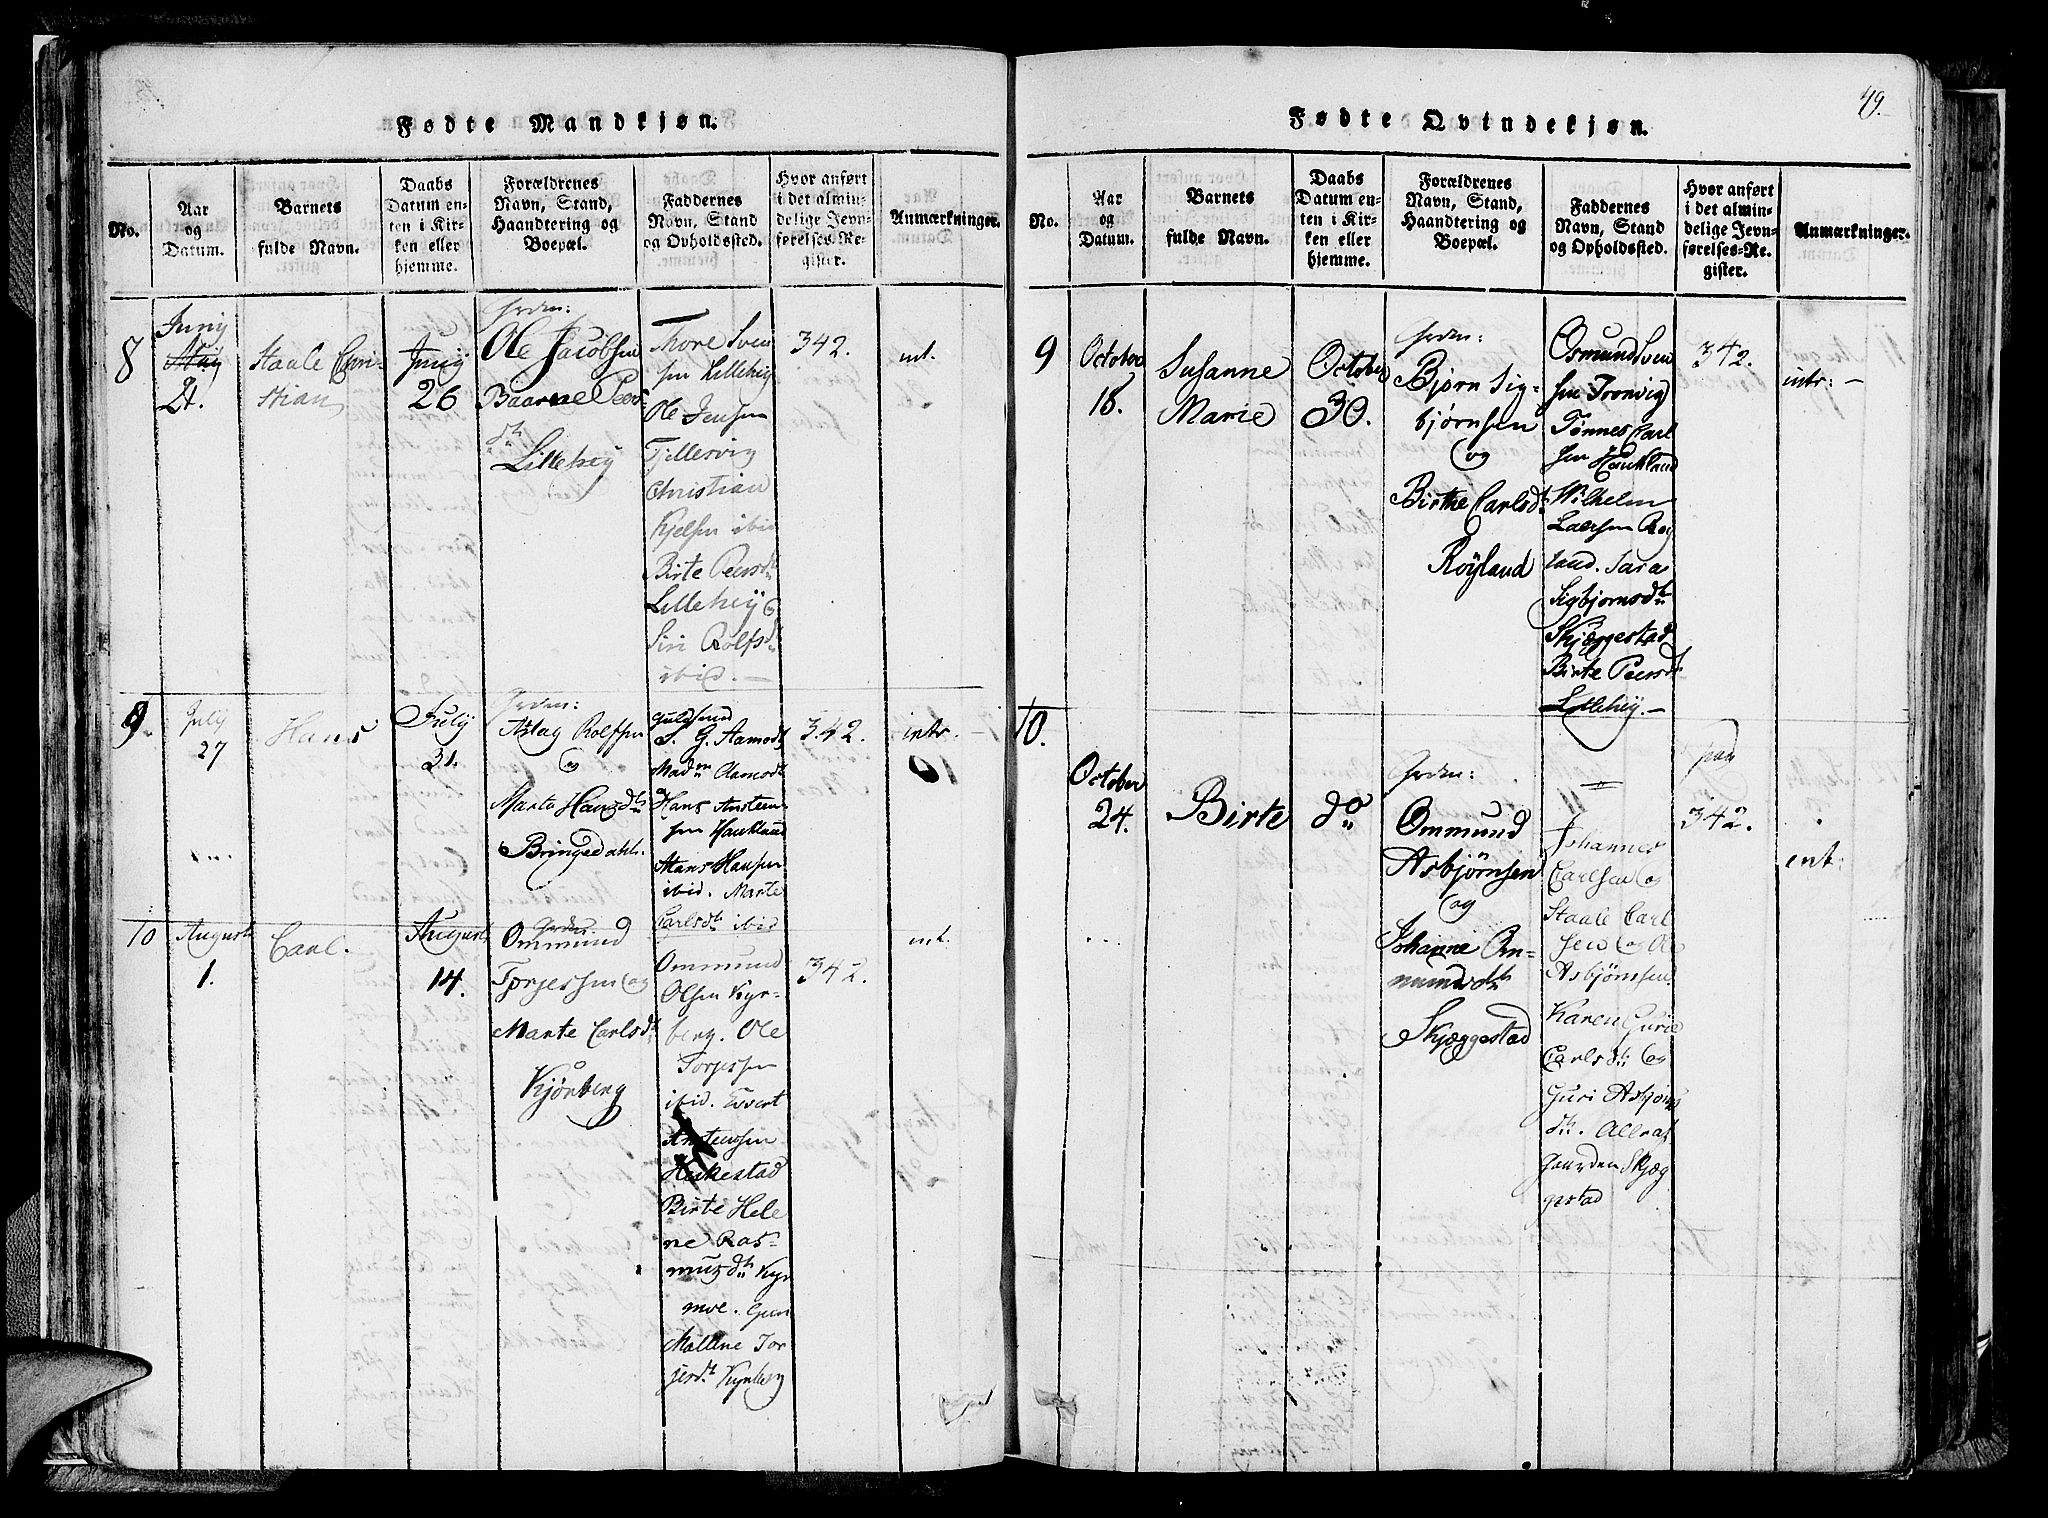 Fødte Mandkjøn.
No.
Aar
og
Datum.
Barnets
fulde Navn.
Daabs
Datum en-
ten i Kir-
ken eller
hjemme.
Forældrenes
Navn, Stand,
Haandtering og
Boepæl.
Faddernes
Navn, Stand
og Opholdssted.
Hvor anført
i det almin-
delige Jevn-
førelses-Re-
gister.
Anmærkninger.
8
Junij
Maij
21.
Staale Chri-
stian
Junij
26
Ole Jacobsen
Baarne Peers
dtr
Lillehej
Thore Sven
sen Lillehej
Ole Jensen
Tjellesvig
Christian
Kjelsen ibid
Birte Peersdtr
Lillehej og
Siri Rolfsdtr
ibid.
342.
int.
9.
July
27
Hans
July
31.
Aslag Rolfsen
og
Marta Hansdtr
Bringedahl.
Guldsmed
S. G. Aamodt
Madm Aamodt
Hans Ansteen-
sen Haukland
Hans Hansen
ibid. Marte
Carlsdtr ibid
342.
intr.
10
10
August
1.
Carl.
August
14.
Ommund
Torjessen og
Marte Carlsdtr
Kjörberg
Ommund
Olsen Kyr-
berg. Ole
Torjessen
ibid. Evert
Ansteensen
Heskestad
Birte Hele
ne Ras-
musdtr Kyr
moe.
Mallene Tor
jersdtr
342.
int.
49.
Fødte Qvindekjøn.
No.
Aar
og
Datum.
Barnets
fulde Navn.
Daabs
Datum en-
ten i Kir-
ken eller
hjemme.
Forældrenes
Navn, Stand,
Haandtering og
Boepæl.
Faddernes
Navn, Stand
og Opholdssted.
Hvor anført
i det almin-
delige Jevn-
førelses-Re-
gister.
Anmærkninger.
9
October
18.
Susanne
Marie
October
30.
Bjørn Sig-
bjørnsen
og
Birthe Carlsdtr
Röyland
Osmund Sven
sen Tronvig
Tønnes Carl
sen Haukland
Wilhelm
Laersen Røg
land. Sara
Sigbjornsdtr
Skjæggestad
Birte Peersdtr
Lillehej.
342.
intr:
10.
October
24.
Birte
do
Ommund
Asbjørnsen
og
Johanne Om-
mundsdtr
Skjæggestad
Johannes
Carlsen og
Staale Carl
sen og Ole
Asbjönssen
Karen Gurie
Carlsdtr og
Guri Asbjöns
dtr. Alle af
Gaarden Skjæg
gestad
pag
342.
int: